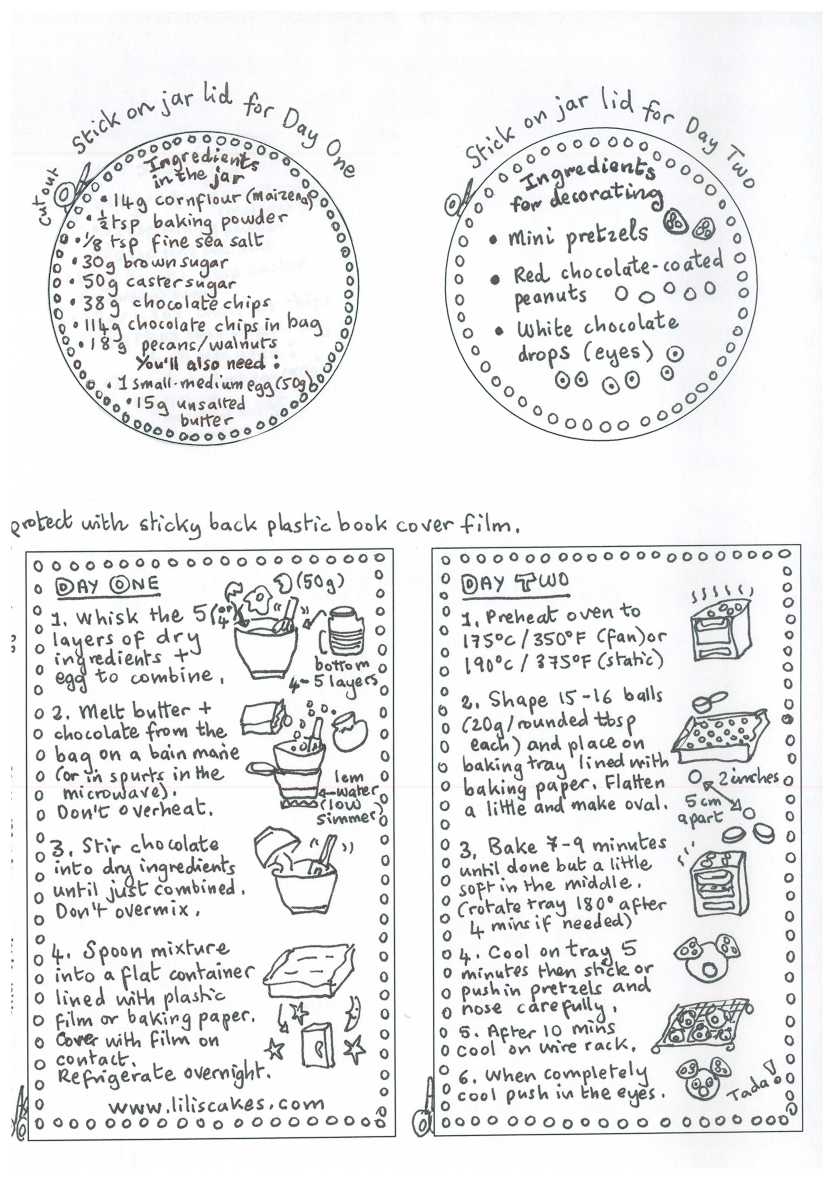 Stick on jar lid for Day One
cut out
Ingredients
in the jar
• 14g cornflour (maizena)
• ½ tsp baking powder
• 1/8 tsp fine sea salt
• 30g brown sugar
• 50g caster sugar
• 38g chocolate chips
• 114g chocolate chips in bag
• 18g pecans/walnuts
You'll also need:
• 1 small-medium egg (50g)
• 15g unsalted
butter
Stick on jar lid for Day Two
Ingredients
for decorating
• Mini pretzels
• Red chocolate-coated
peanuts
• White chocolate
drops (eyes)
protect with sticky back plastic book cover film.
DAY ONE
(50g)
1. Whisk the 5 (or 4)
layers of dry
ingredients +
egg to combine.
bottom
4-5 layers
2. Melt butter +
chocolate from the
bag on a bain marie
(or in spurts in the
microwave).
Don't overheat.
1cm
water
(low
simmer)
3. Stir chocolate
into dry ingredients
until just combined.
Don't overmix.
4. Spoon mixture
into a flat container
lined with plastic
film or baking paper.
Cover with film on
contact.
Refrigerate overnight.
www.liliscakes.com
DAY TWO
1. Preheat oven to
175°C / 350°F (fan) or
190°C / 375°F (static)
2. Shape 15-16 balls
(20g/rounded tbsp
each) and place on
baking tray lined with
baking paper. Flatten
a little and make oval.
2 inches
5 cm
apart
3. Bake 7-9 minutes
until done but a little
soft in the middle.
(rotate tray 180° after
4 mins if needed)
4. Cool on tray 5
minutes then stick or
push in pretzels and
nose carefully.
5. After 10 mins
cool on wire rack.
6. When completely
cool push in the eyes.
Tada!